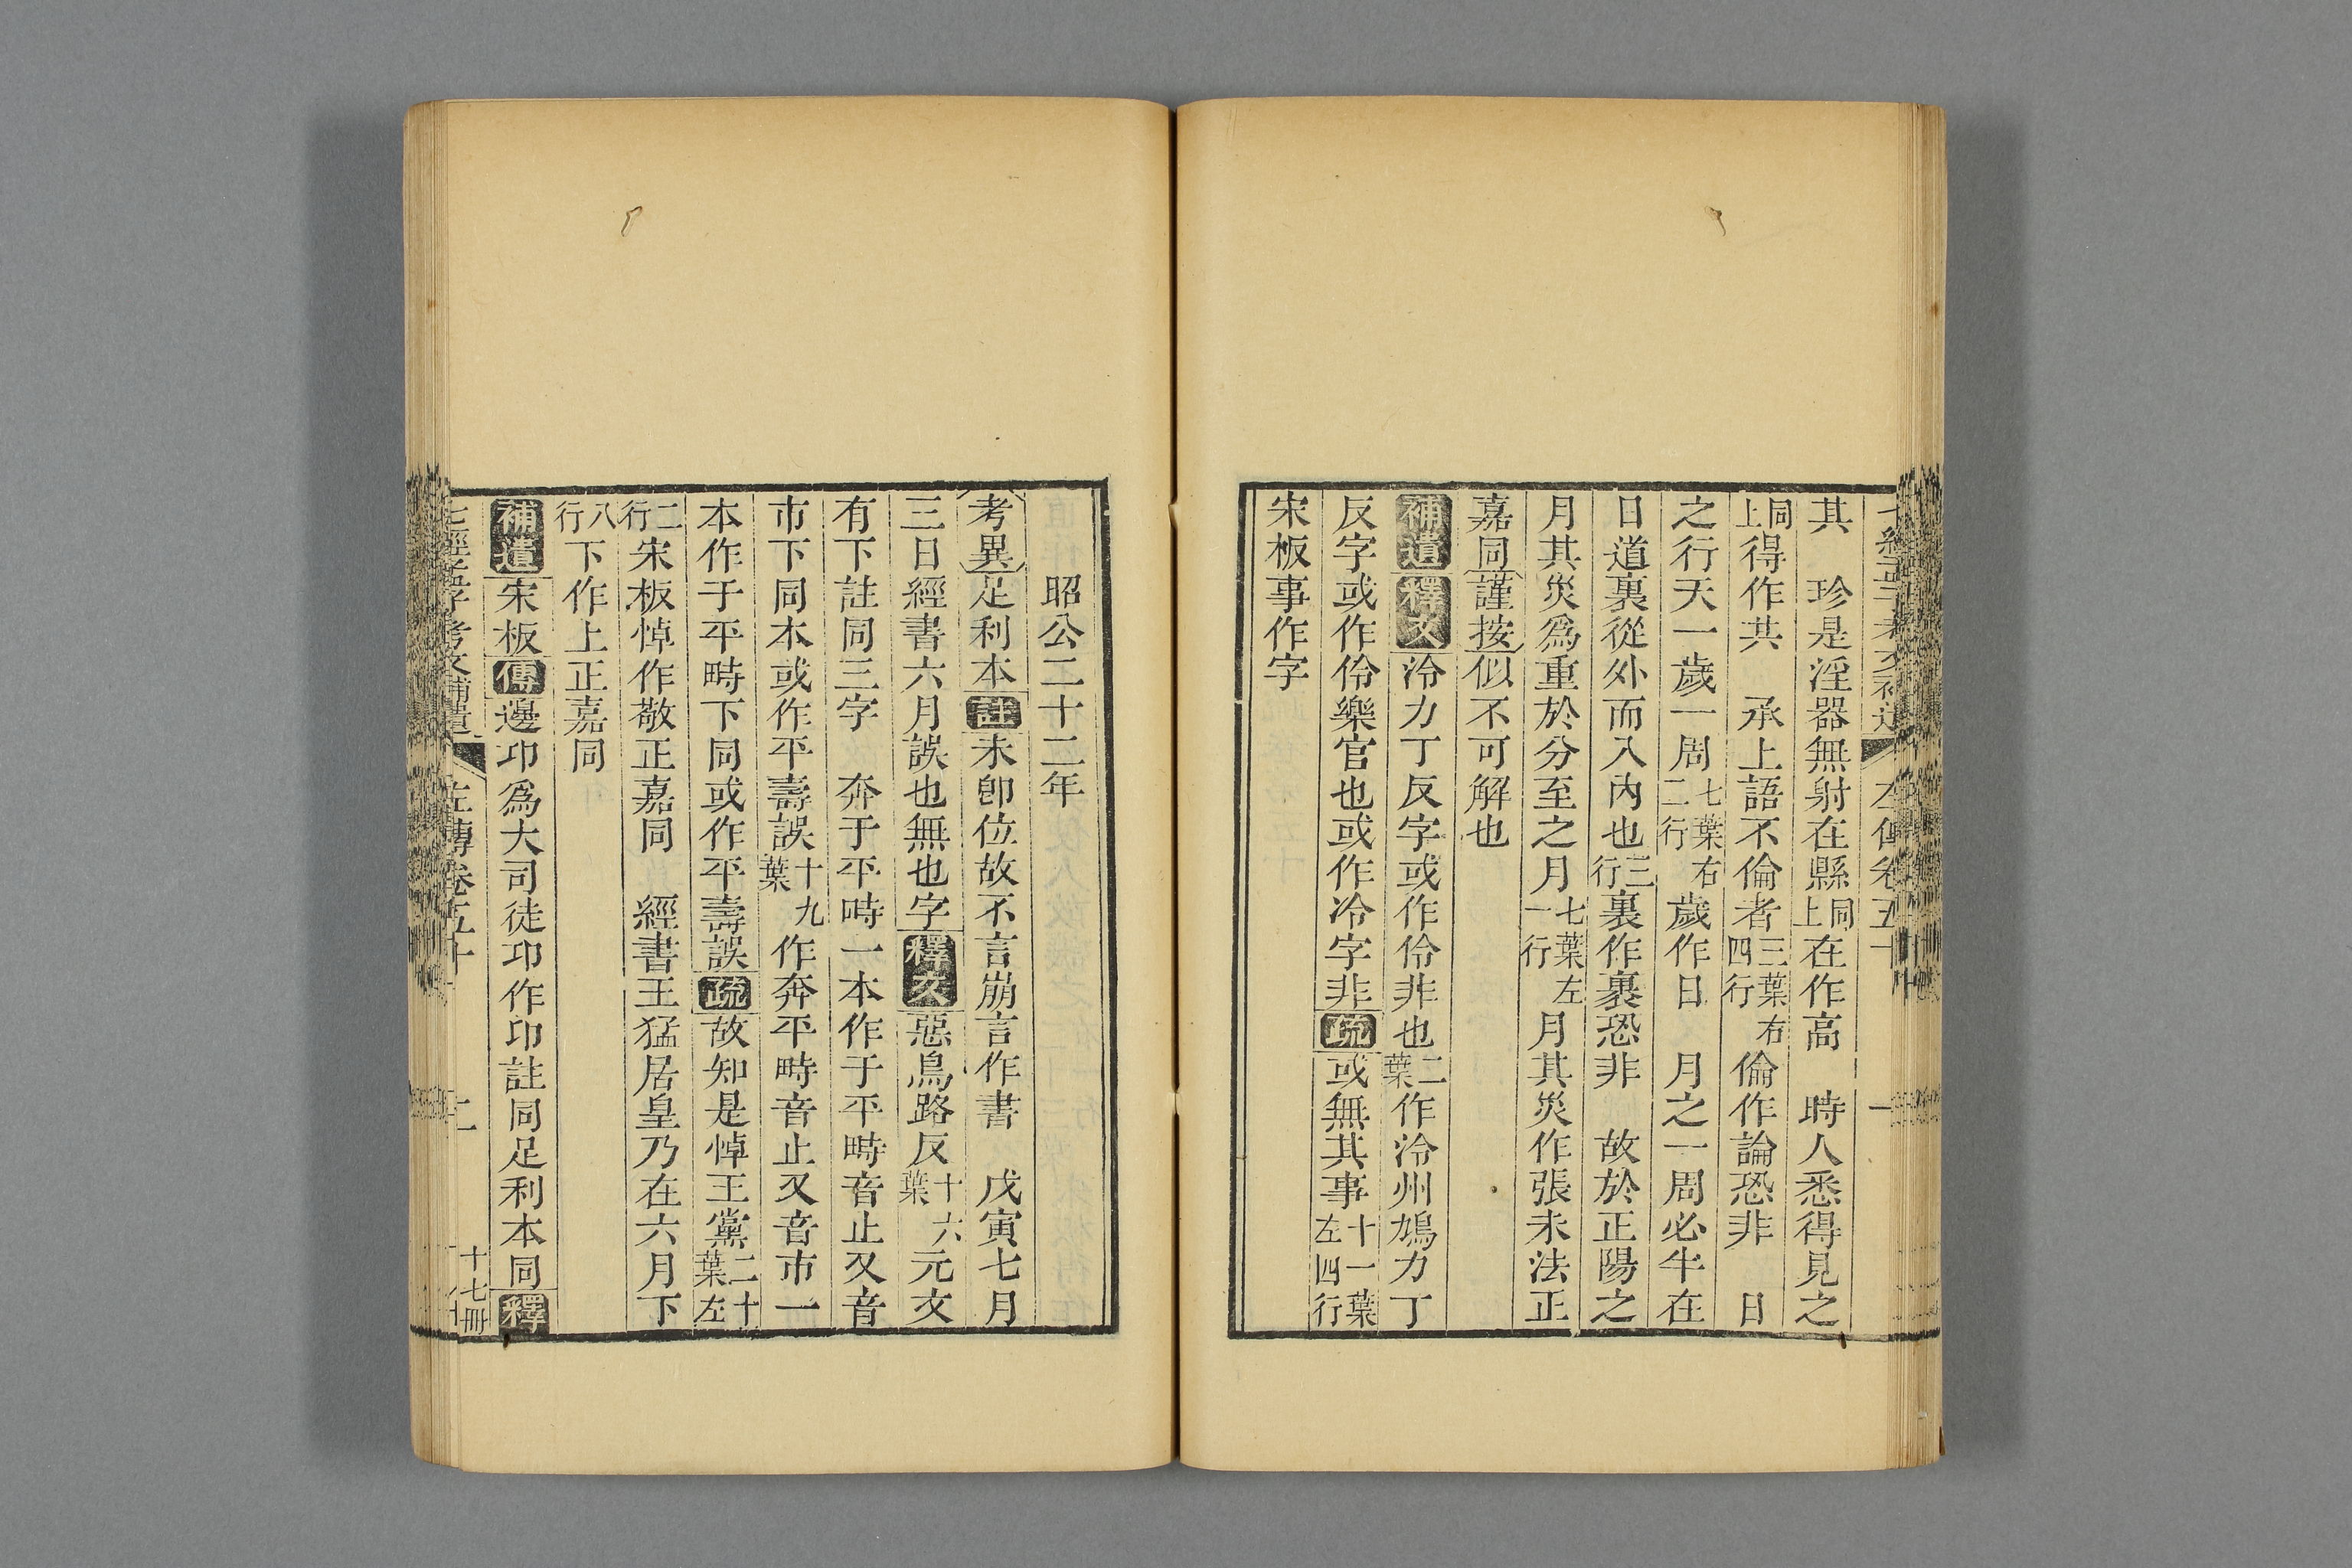 其　珍是淫器無射在縣同上在作高　時人悉得見之
同上得作其　承上語不倫者三葉右四行倫作論恐非　日
之行天一歲一周七葉右二行歲作日　月之一周必半在
日道裏從外而入內也三行裏作裹恐非　故於正陽之
月其災爲重於分至之月七葉左一行月其災作張未法正
嘉同謹按似不可解也
補遺釋文泠力丁反字或作伶非也二葉作泠州鳩力丁
反字或作伶樂官也或作冷字非疏或無其事十一葉左四行
宋板事作字
昭公二十二年
考異足利本註未卽位故不言崩言作書　戊寅七月
三日經書六月誤也無也字釋文惡烏路反十六葉元文
有下註同三字　奔于平畤一本作于平畤音止又音
市下同本或作平壽誤十九葉作奔平畤音止又音市一
本作于平畤下同或作平壽誤疏故知是悼王黨二十葉左
二行宋板悼作敬正嘉同　經書王猛居皇乃在六月下
八行下作上正嘉同
補遺宋板傳邊卬爲大司徒卬作印註同足利本同釋
七經孟子考文補遺　左傳卷五十　二　十七冊